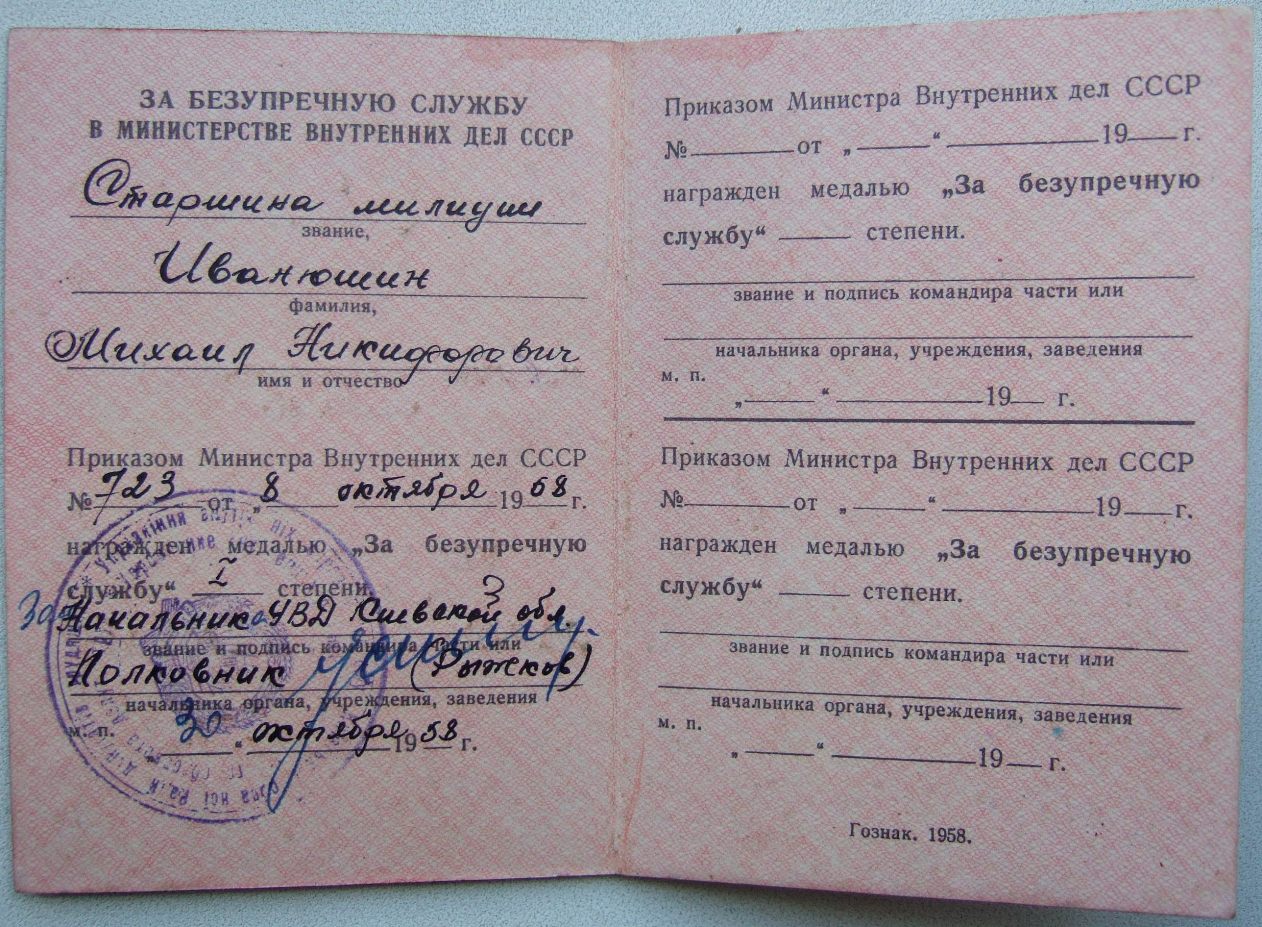 ЗА БЕЗУПРЕЧНУЮ СЛУЖБУ
В МИНИСТЕРСТВЕ ВНУТРЕННИХ ДЕЛ СССР
Старшина милиции
звание,
Иванюшин
фамилия,
Михаил Никифорович
имя и отчество
Приказом Министра Внутренних дел СССР
№ 723 от „8 октября 1958 г.
награжден медалью „За безупречную
службу“ I степени.
Зам Начальника УВД Киевской обл.
звание и подпись командира части или
Полковник (Рыжков)
начальника органа, учреждения, заведения
м. п.
„30“ октября 1958 г.
Приказом Министра Внутренних дел СССР
№ от „ “ 19 г.
награжден медалью „За безупречную
службу“ степени.
звание и подпись командира части или
начальника органа, учреждения, заведения
м. п.
„ “ 19 г.
Приказом Министра Внутренних дел СССР
№ от „ “ 19 г.
награжден медалью „За безупречную
службу“ степени.
звание и подпись командира части или
начальника органа, учреждения, заведения
м. п.
„ “ 19 г.
Гознак. 1958.